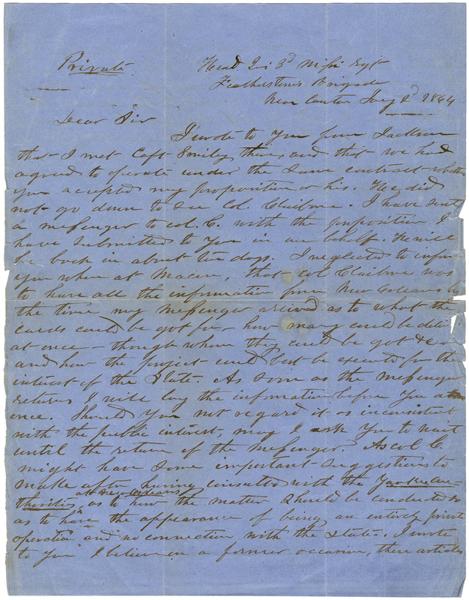 Private
Head Qrs 3d Miss Regt
Featherston's Brigade
Near Canton Jany 2d 1864
Dear Sir
I wrote to you from Jackson
that I met Capt Smiley there, and that we had
agreed to operate under the same contract whether
you accepted my proposition or his. He did
not go down to see Col. Claiborne. I have sent
a messenger to Col. C. with the proposition I
have submitted to you in our behalf. He will
be back in about ten days. I neglected to inform
you when at Macon, that Col Claiborne was
to have all the information from New Orleans by
the time my messenger arrived as to what the
cards could be got for, how many could be deld
at once though where they could be got &c
and how the project could best be executed for the
interest of the State. As soon as the messenger
returns I will lay the information before you at
once. Should you not regard it as inconsistent
with the public interest, may I ask you to wait
until the return of the messenger. As Col C.
might have some important suggestions to
make after having consulted with the Yankee au-
thorities at New Orleans as to how the matter should be conducted so
as to have the appearance of being an entirely private
operation and no connection with the State. I wrote
to you I believe on a former occasion, these articles